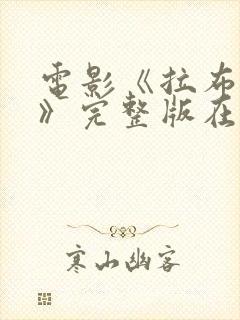 電影《拉布
》完整版在
寒山幽客